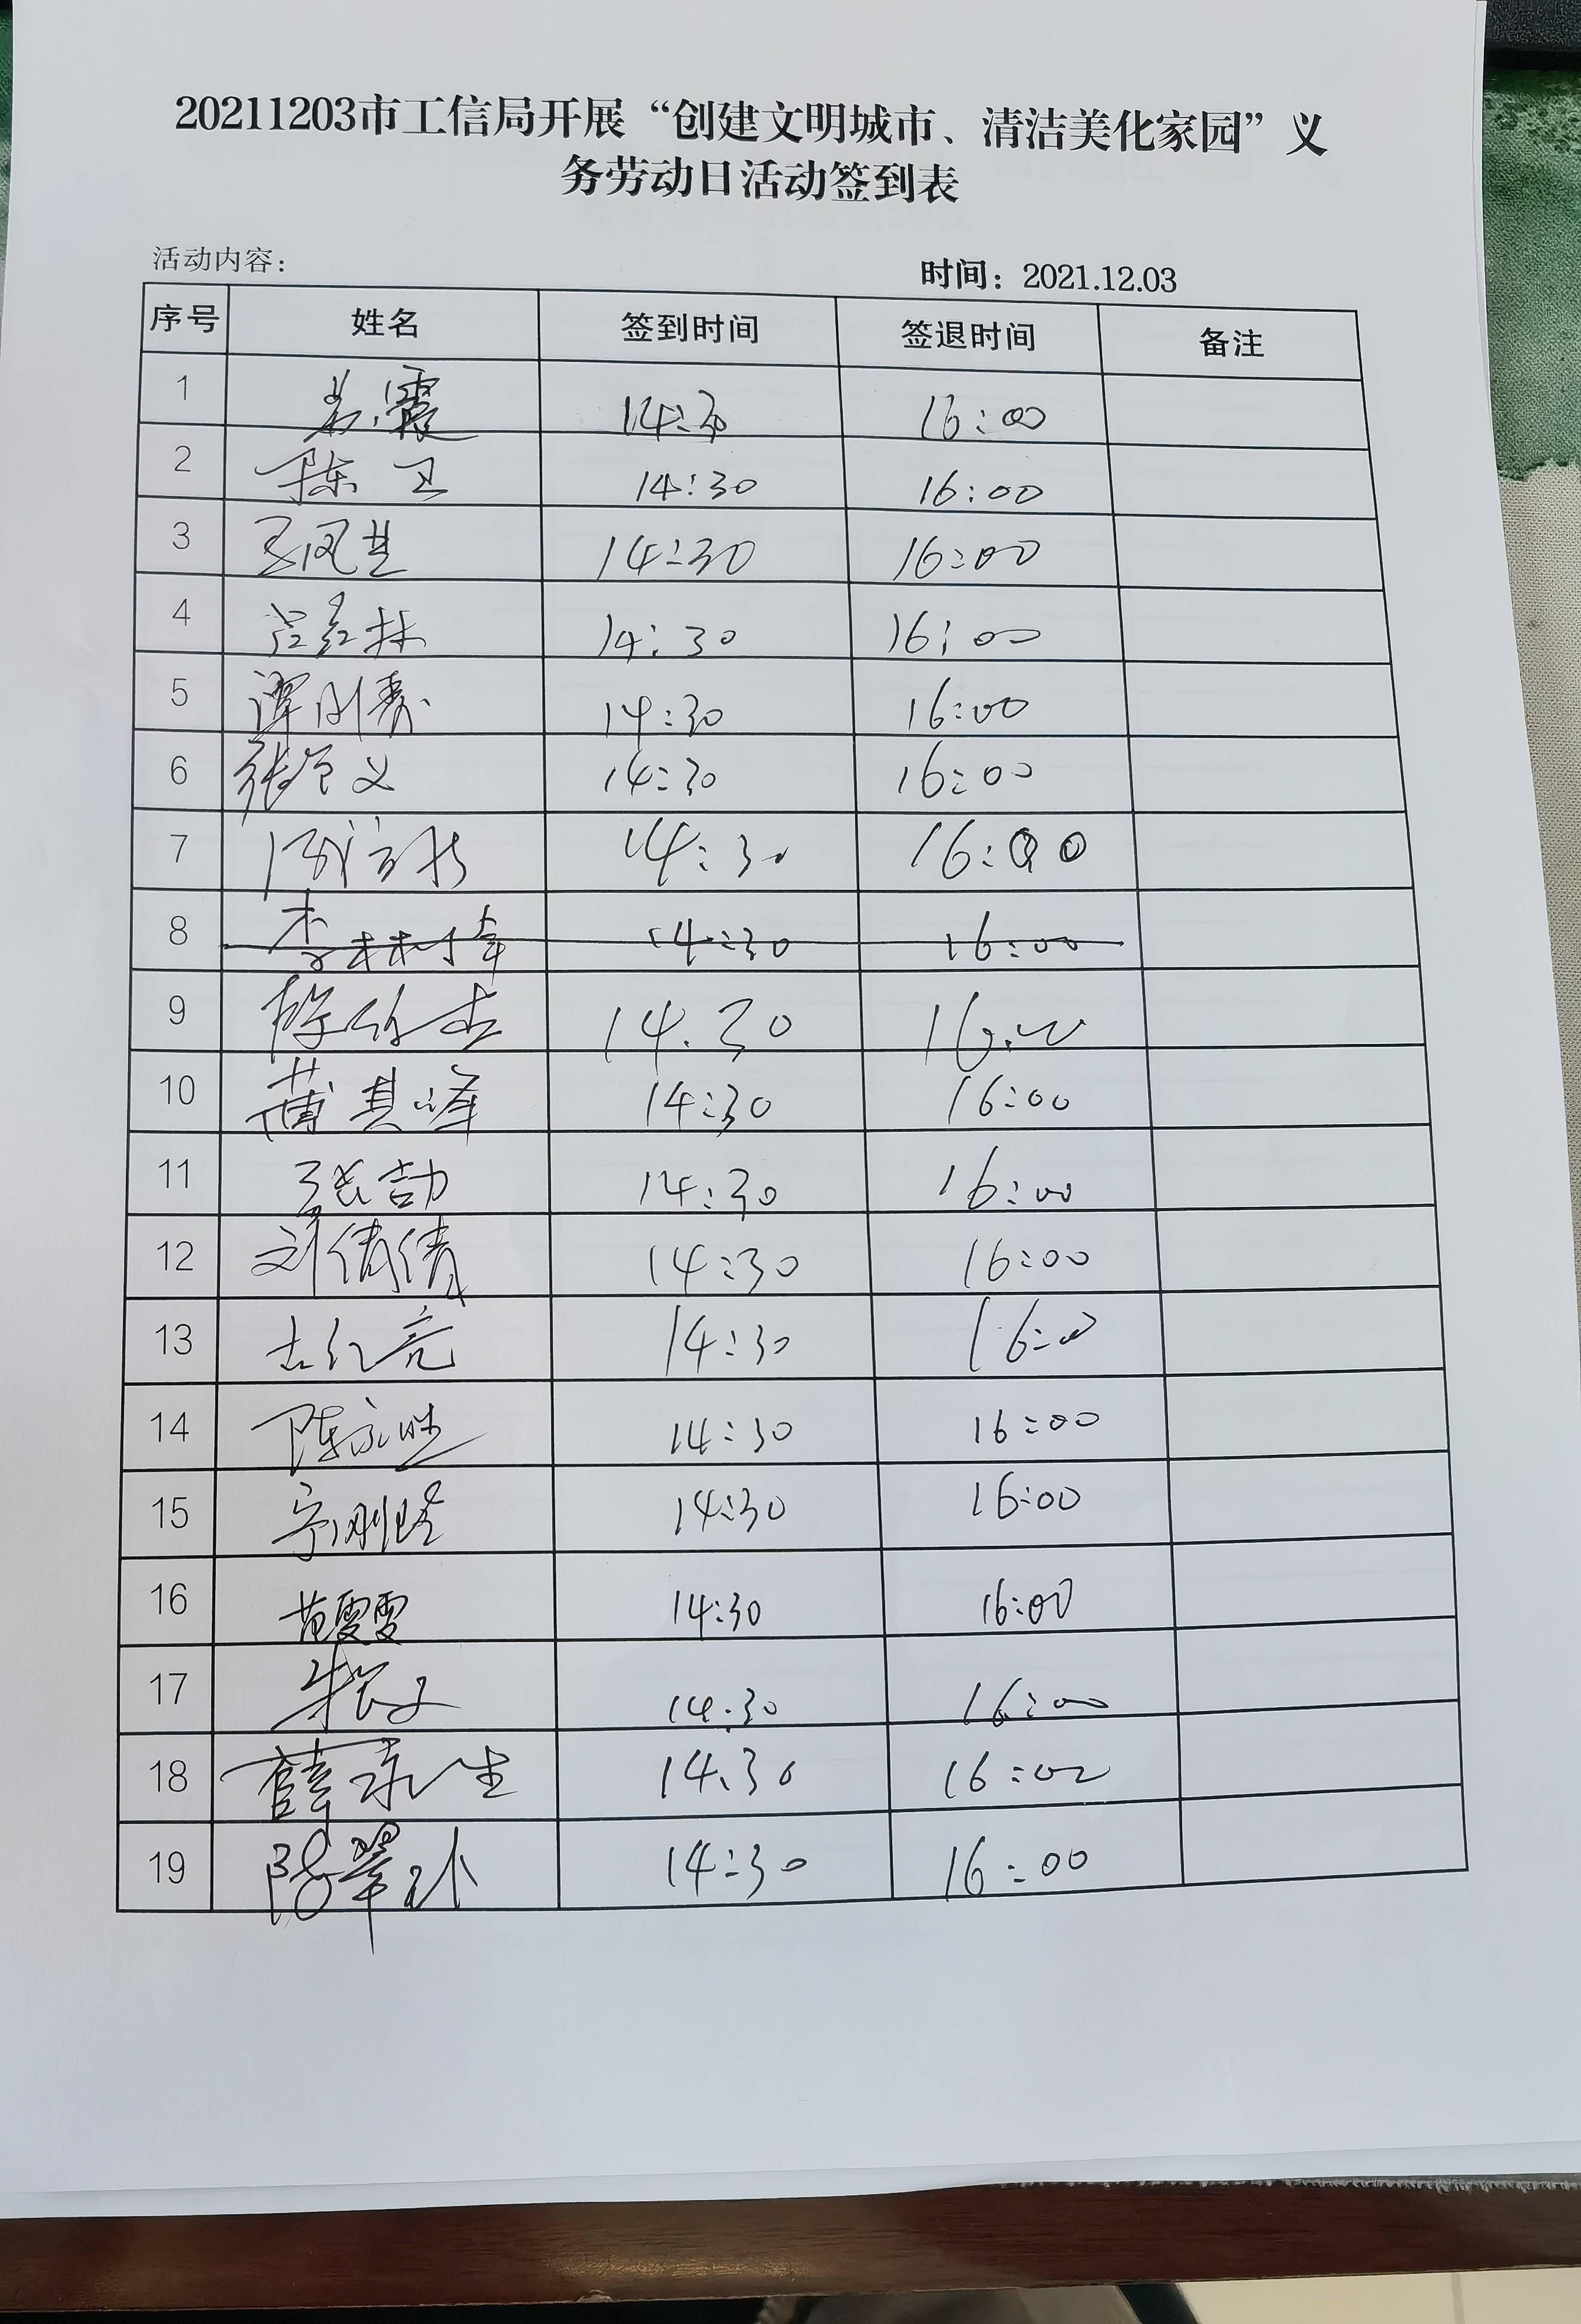 20211203市工信局开展“创建文明城市、清洁美化家园”义
务劳动日活动签到表
活动内容：
时间：2021.12.03
序号 姓名 签到时间 签退时间 备注
1 14:30 16:00
2 陈卫 14:30 16:00
3 14:30 16:00
4 14:30 16:00
5 14:30 16:00
6 14:30 16:00
7 14:30 16:00
8 14:30 16:00
9 14.30 16.00
10 薄其峰 14:30 16:00
11 张喆 14:30 16:00
12 刘倩倩 14:30 16:00
13 14:30 16:00
14 陈永胜 14:30 16:00
15 14:30 16:00
16 范雯雯 14:30 16:00
17 14.30 16:00
18 薛永生 14.30 16:00
19 陈翠 14:30 16:00